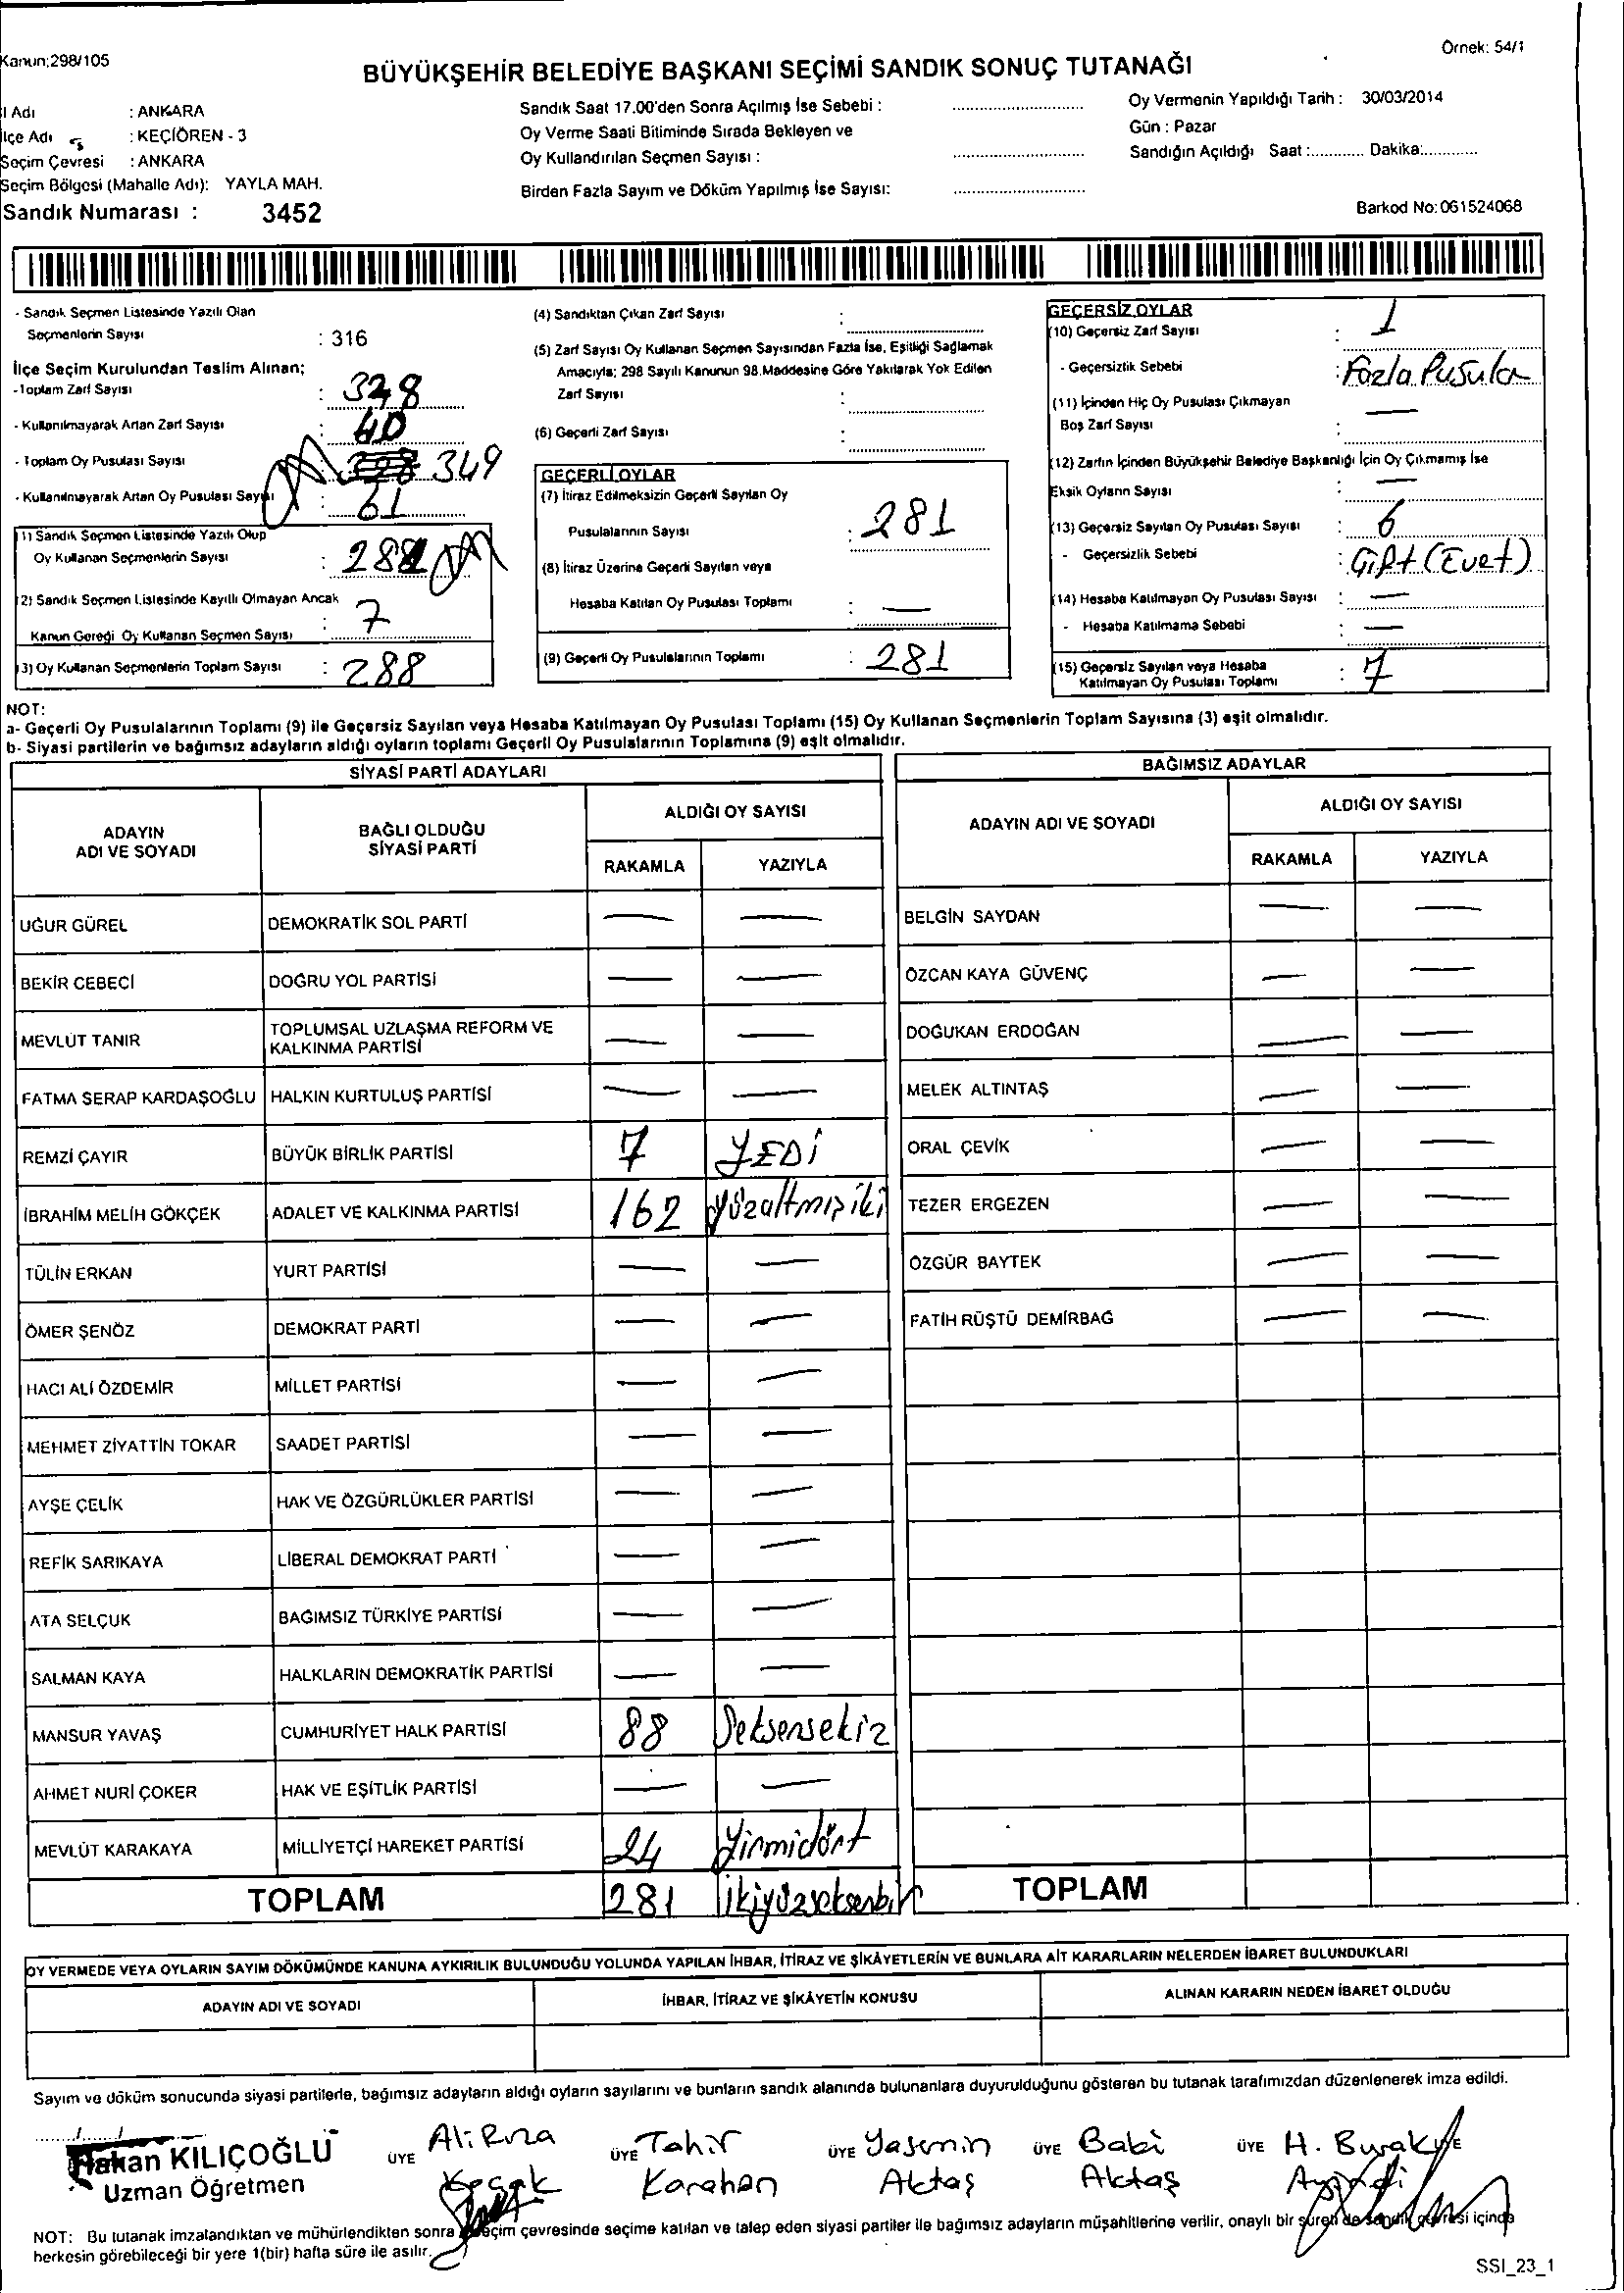 Kanun;298/105
Örnek: 54/1
BÜYÜKŞEHİR BELEDİYE BAŞKANI SEÇİMİ SANDIK SONUÇ TUTANAĞI
İl Adı : ANKARA
İlçe Adı : KEÇİÖREN - 3
Seçim Çevresi : ANKARA
Seçim Bölgesi (Mahalle Adı): YAYLA MAH.
Sandık Numarası : 3452
Sandık Saat 17.00'den Sonra Açılmış İse Sebebi : ..........
Oy Verme Saati Bitiminde Sırada Bekleyen ve
Oy Kullandırılan Seçmen Sayısı : ..........
Birden Fazla Sayım ve Döküm Yapılmış İse Sayısı: ..........
Oy Vermenin Yapıldığı Tarih : 30/03/2014
Gün : Pazar
Sandığın Açıldığı Saat :............ Dakika:............
Barkod No:061524068
- Sandık Seçmen Listesinde Yazılı Olan
Seçmenlerin Sayısı : 316
İlçe Seçim Kurulundan Teslim Alınan;
-Toplam Zarf Sayısı : 328
- Kullanılmayarak Artan Zarf Sayısı : 40
- Toplam Oy Pusulası Sayısı : 349
- Kullanılmayarak Artan Oy Pusulası Sayısı : 61
1) Sandık Seçmen Listesinde Yazılı Olup
Oy Kullanan Seçmenlerin Sayısı :
2) Sandık Seçmen Listesinde Kayıtlı Olmayan Ancak
Kanun Gereği Oy Kullanan Seçmen Sayısı : 7
3) Oy Kullanan Seçmenlerin Toplam Sayısı : 288
(4) Sandıktan Çıkan Zarf Sayısı :
(5) Zarf Sayısı Oy Kullanan Seçmen Sayısından Fazla İse, Eşitliği Sağlamak
Amacıyla; 298 Sayılı Kanunun 98.Maddesine Göre Yakılarak Yok Edilen
Zarf Sayısı :
(6) Geçerli Zarf Sayısı :
GEÇERLİ OYLAR
(7) İtiraz Edilmeksizin Geçerli Sayılan Oy
Pusulalarının Sayısı : 281
(8) İtiraz Üzerine Geçerli Sayılan veya
Hesaba Katılan Oy Pusulası Toplamı : —
(9) Geçerli Oy Pusulalarının Toplamı : 281
GEÇERSİZ OYLAR
(10) Geçersiz Zarf Sayısı : 1
- Geçersizlik Sebebi : Fazla Pusula
(11) İçinden Hiç Oy Pusulası Çıkmayan
Boş Zarf Sayısı : —
(12) Zarfın İçinden Büyükşehir Belediye Başkanlığı İçin Oy Çıkmamış İse
Eksik Oyların Sayısı : —
(13) Geçersiz Sayılan Oy Pusulası Sayısı : 6
- Geçersizlik Sebebi : Çift (Evet)
(14) Hesaba Katılmayan Oy Pusulası Sayısı : —
- Hesaba Katılmama Sebebi : —
(15) Geçersiz Sayılan veya Hesaba
Katılmayan Oy Pusulası Toplamı : 7
NOT:
a- Geçerli Oy Pusulalarının Toplamı (9) ile Geçersiz Sayılan veya Hesaba Katılmayan Oy Pusulası Toplamı (15) Oy Kullanan Seçmenlerin Toplam Sayısına (3) eşit olmalıdır.
b- Siyasi partilerin ve bağımsız adayların aldığı oyların toplamı Geçerli Oy Pusulalarının Toplamına (9) eşit olmalıdır.
SİYASİ PARTİ ADAYLARI
ADAYIN
ADI VE SOYADI
BAĞLI OLDUĞU
SİYASİ PARTİ
ALDIĞI OY SAYISI
RAKAMLA YAZIYLA
UĞUR GÜREL DEMOKRATİK SOL PARTİ — —
BEKİR CEBECİ DOĞRU YOL PARTİSİ — —
MEVLÜT TANIR TOPLUMSAL UZLAŞMA REFORM VE
KALKINMA PARTİSİ — —
FATMA SERAP KARDAŞOĞLU HALKIN KURTULUŞ PARTİSİ — —
REMZİ ÇAYIR BÜYÜK BİRLİK PARTİSİ 7 YEDİ
İBRAHİM MELİH GÖKÇEK ADALET VE KALKINMA PARTİSİ 162 Yüzaltmışiki
TÜLİN ERKAN YURT PARTİSİ — —
ÖMER ŞENÖZ DEMOKRAT PARTİ — —
HACI ALİ ÖZDEMİR MİLLET PARTİSİ — —
MEHMET ZİYATTİN TOKAR SAADET PARTİSİ — —
AYŞE ÇELİK HAK VE ÖZGÜRLÜKLER PARTİSİ — —
REFİK SARIKAYA LİBERAL DEMOKRAT PARTİ — —
ATA SELÇUK BAĞIMSIZ TÜRKİYE PARTİSİ — —
SALMAN KAYA HALKLARIN DEMOKRATİK PARTİSİ — —
MANSUR YAVAŞ CUMHURİYET HALK PARTİSİ 88 Seksensekiz
AHMET NURİ ÇOKER HAK VE EŞİTLİK PARTİSİ — —
MEVLÜT KARAKAYA MİLLİYETÇİ HAREKET PARTİSİ 24 Yirmidört
TOPLAM 281 İkiyüzseksenbir
BAĞIMSIZ ADAYLAR
ADAYIN ADI VE SOYADI
ALDIĞI OY SAYISI
RAKAMLA YAZIYLA
BELGİN SAYDAN — —
ÖZCAN KAYA GÜVENÇ — —
DOĞUKAN ERDOĞAN — —
MELEK ALTINTAŞ — —
ORAL ÇEVİK — —
TEZER ERGEZEN — —
ÖZGÜR BAYTEK — —
FATİH RÜŞTÜ DEMİRBAĞ — —
TOPLAM
OY VERMEDE VEYA OYLARIN SAYIM DÖKÜMÜNDE KANUNA AYKIRILIK BULUNDUĞU YOLUNDA YAPILAN İHBAR, İTİRAZ VE ŞİKÂYETLERİN VE BUNLARA AİT KARARLARIN NELERDEN İBARET BULUNDUKLARI
ADAYIN ADI VE SOYADI İHBAR, İTİRAZ VE ŞİKÂYETİN KONUSU ALINAN KARARIN NEDEN İBARET OLDUĞU
Sayım ve döküm sonucunda siyasi partilerle, bağımsız adayların aldığı oyların sayılarını ve bunların sandık alanında bulunanlara duyurulduğunu gösteren bu tutanak tarafımızdan düzenlenerek imza edildi.
Hakan KILIÇOĞLU
Uzman Öğretmen
ÜYE Ali Rıza
Koçak
ÜYE Tahir
Karahan
ÜYE Yasemin
Aktaş
ÜYE Baki
Aktaş
ÜYE H. Burak
NOT: Bu tutanak imzalandıktan ve mühürlendikten sonra seçim çevresinde seçime katılan ve talep eden siyasi partiler ile bağımsız adayların müşahitlerine verilir, onaylı bir sureti de sandık çevresi içinde
herkesin görebileceği bir yere 1(bir) hafta süre ile asılır.
SSI_23_1